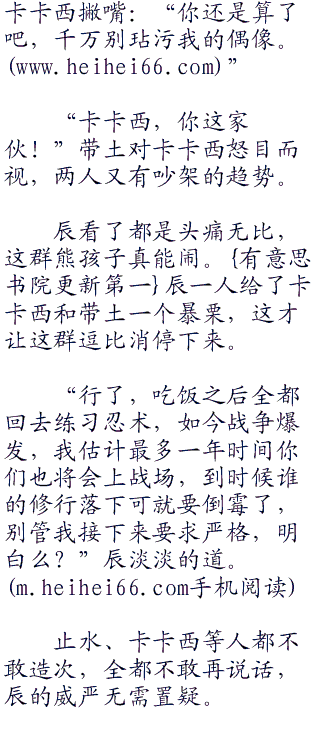 卡卡西撇嘴：“你还是算了
吧，千万别玷污我的偶像。
(www.heihei66.com)”
“卡卡西，你这家
伙！”带土对卡卡西怒目而
视，两人又有吵架的趋势。
辰看了都是头痛无比，
这群熊孩子真能闹。{有意思
书院更新第一}辰一人给了卡
卡西和带土一个暴栗，这才
让这群逗比消停下来。
“行了，吃饭之后全都
回去练习忍术，如今战争爆
发，我估计最多一年时间你
们也将会上战场，到时候谁
的修行落下可就要倒霉了，
别管我接下来要求严格，明
白么？”辰淡淡的道。
(m.heihei66.com手机阅读)
止水、卡卡西等人都不
敢造次，全都不敢再说话，
辰的威严无需置疑。